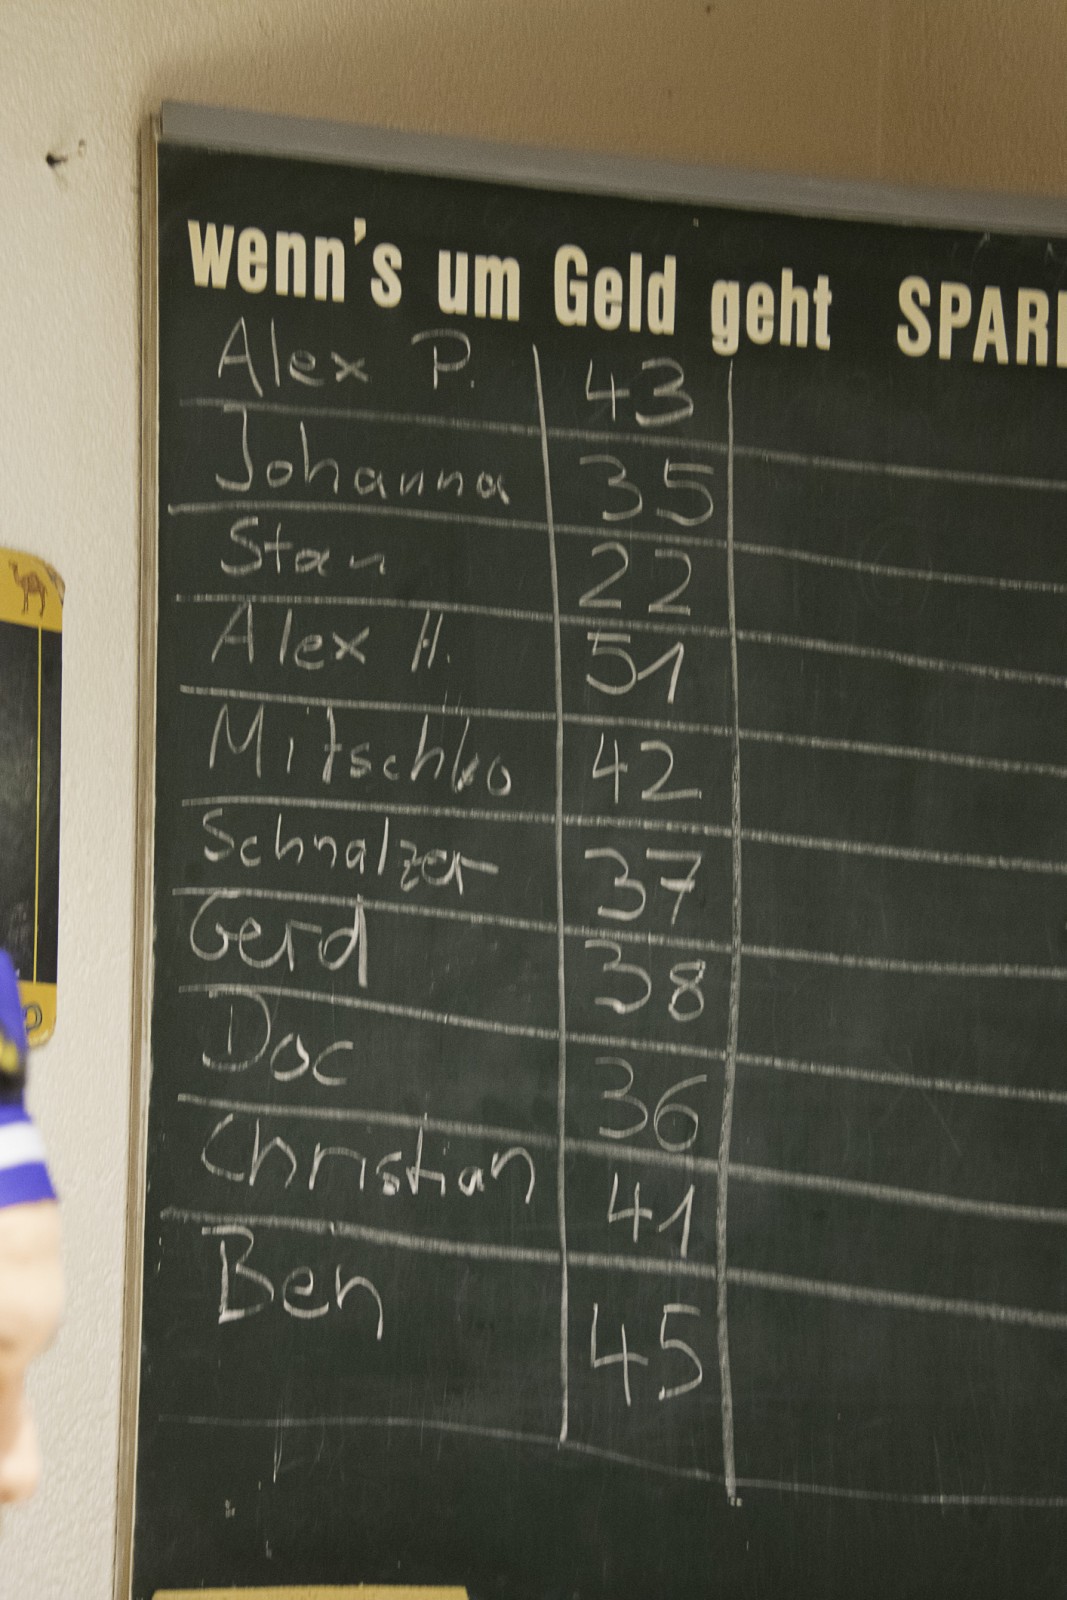 wenn's um Geld geht SPAR
Alex P. 43
Johanna 35
Stan 22
Alex H. 51
Mitschko 42
Schnalzer 37
Gerd 38
Doc 36
Christian 41
Ben 45